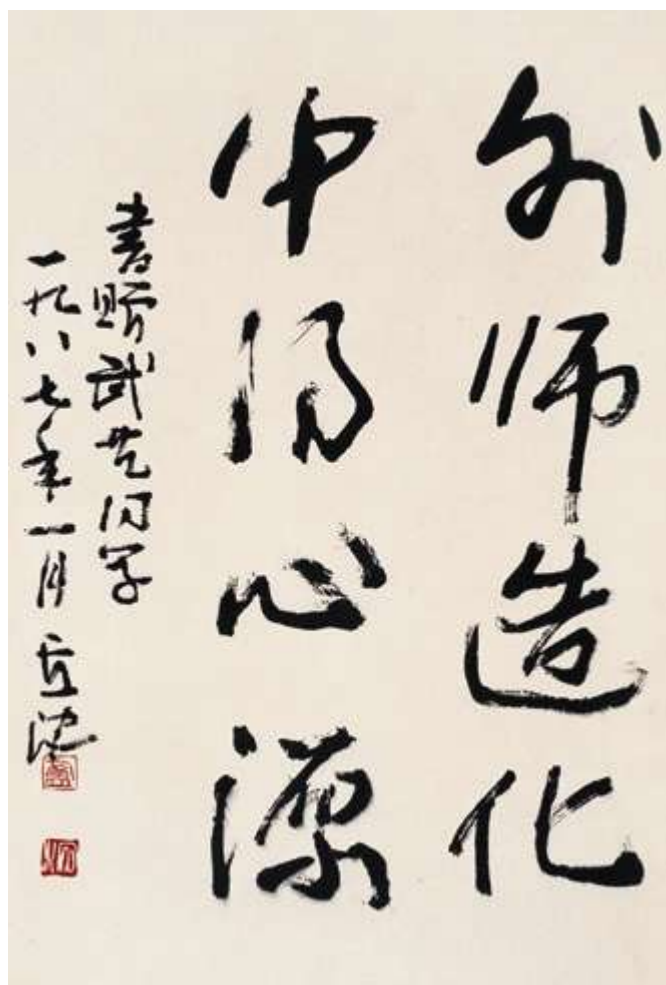 外师造化
中得心源
書赠武艺同学
一九八七年一月